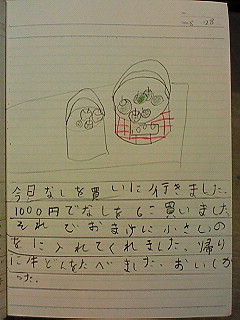 今日なしを買いに行きました。
1000円でなしを6こ買いました
それ でおまけに小さいの
を に入れてくれました。帰り
にはどんをたべました。おいしか
った。